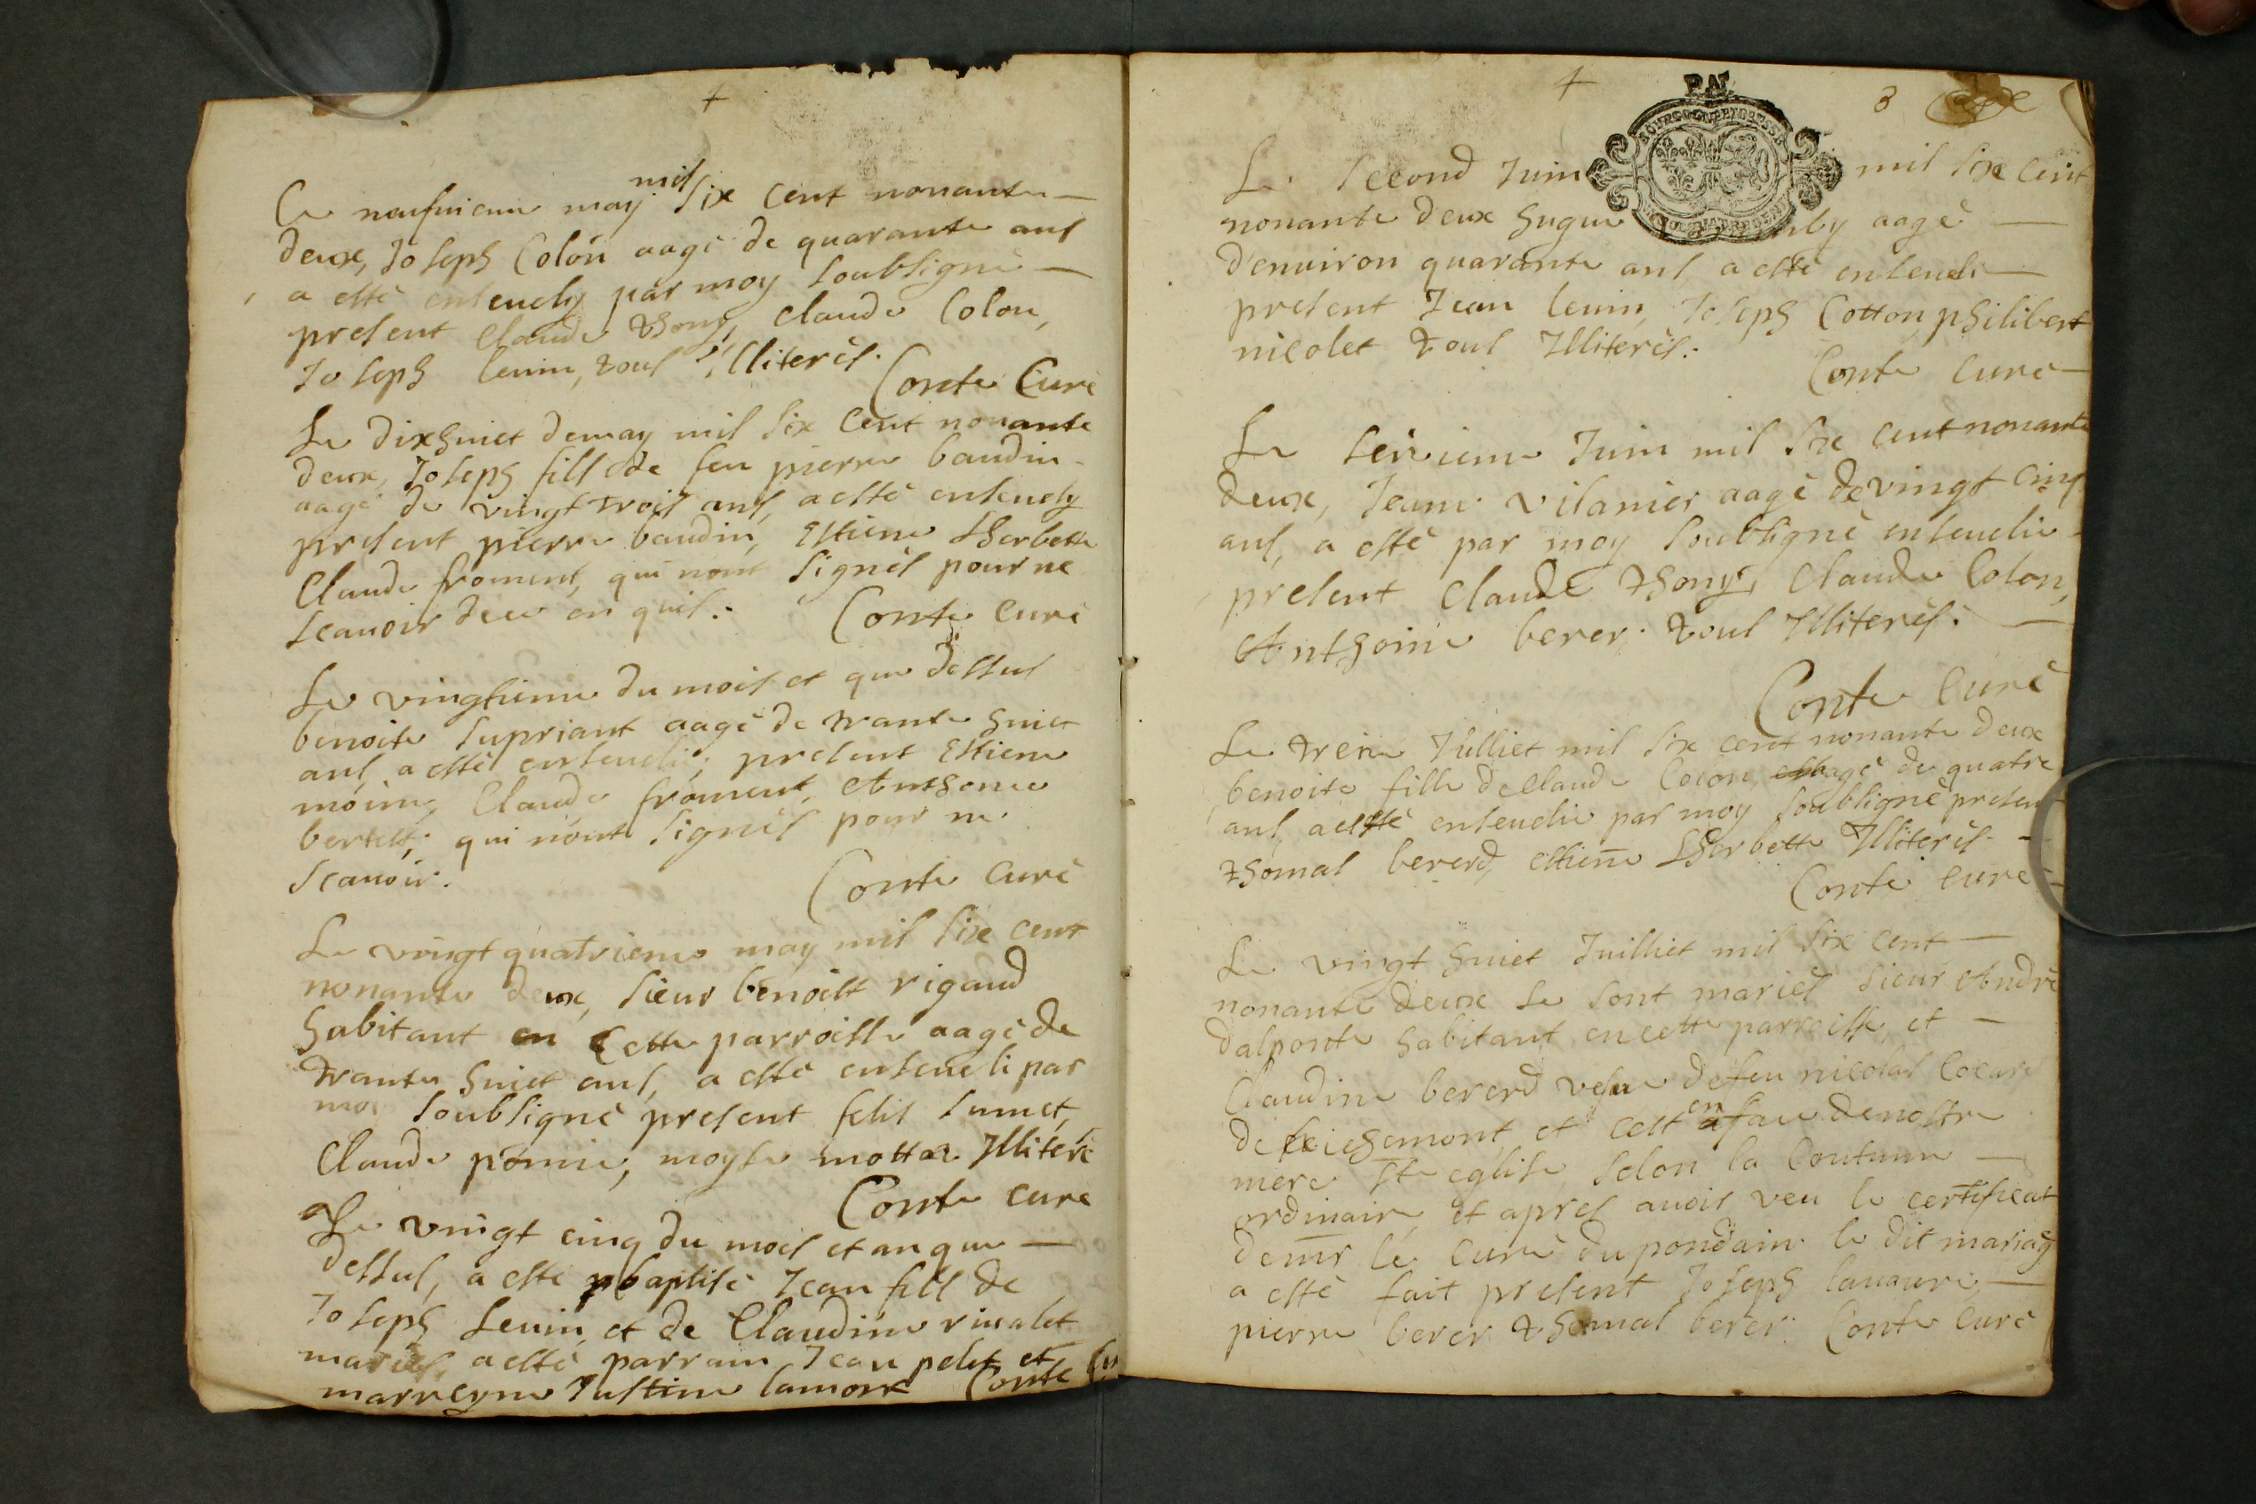 Ce neufuieme may mil six cent nonante
deux, Joseph Colon aagé de quarante ans
a esté enseuely par moy soubsigné
present Claude thony, Claude Colon,
Joseph leuin, tous Illiterés.
Conte Curé
Le dixhuict de may mil six cent nonante
deux, Joseph fills de feu pierre baudin
aagé de vingt trois ans, a esté enseuely
present pierre baudin, Estiene Lherbette
Claude froment, qui nont signés pour ne
scauoir dece en quis.
Conte curé
Le vingtieme du mois et que dessus
benoite supriant aagé de trante huict
ans, a esté enseuelie, present Estiene
moine, Claude froment, Anthoine
qui nont signés pour ne
scauoir.
Conte Curé
Le vingt quatrieme may mil six cent
nonante deux, sieur benoist rigaud
habitant en Cette parroisse aagé de
trante huict ans, a esté enseueli par
moy soubsigné present felis
Claude pomie, moyse motta Illiteré
Conte curé
Le vingt cinq du mois et an que
dessus, a esté baptisé Jean fils de
Joseph Leuin et de Claudine riualet
mariés, a esté parrain Jean pelet et
marreyne Justine lamour Conte Cu
+
+
PAT
3
Le second Juin mil six cent
nonante deux hugue by aagé
d'enuiron quarante ans, a esté enseueli
present Jean leuin, Joseph Cotton, philibert
nicolet tous Illiterés.
Conte Curé
Le seizieme Juin mil six cent nonante
deux, Jeane vilanier aagé de vingt cinq
ans, a esté par moy soubsigné enseuelie
present Claude thony, Claude Colon,
Anthoine berer, tous Illiterés.
Conte Curé
Le treize Julliet mil six cent nonante deux
benoite fille de Claude Colon, aagé de quatre
ans, a esté enseuelie par moy soubsigné present
thomas bererd, estiene Lherbette Illiterés.
Conte Curé
Le vingt huict Juilliet mil six cent
nonante deux se sont mariés sieur André
dalponte habitant en cette parroisse, et
Claudine bererd vefue de feu nicolas
et cest en face de nostre
mere ste eglise selon la Coutume
ordinaire, et apres auoir veu le certificat
de mr le curé du pondain le dit mariag
a esté fait present Joseph lauaure,
pierre berer thomas berer. Conte Curé